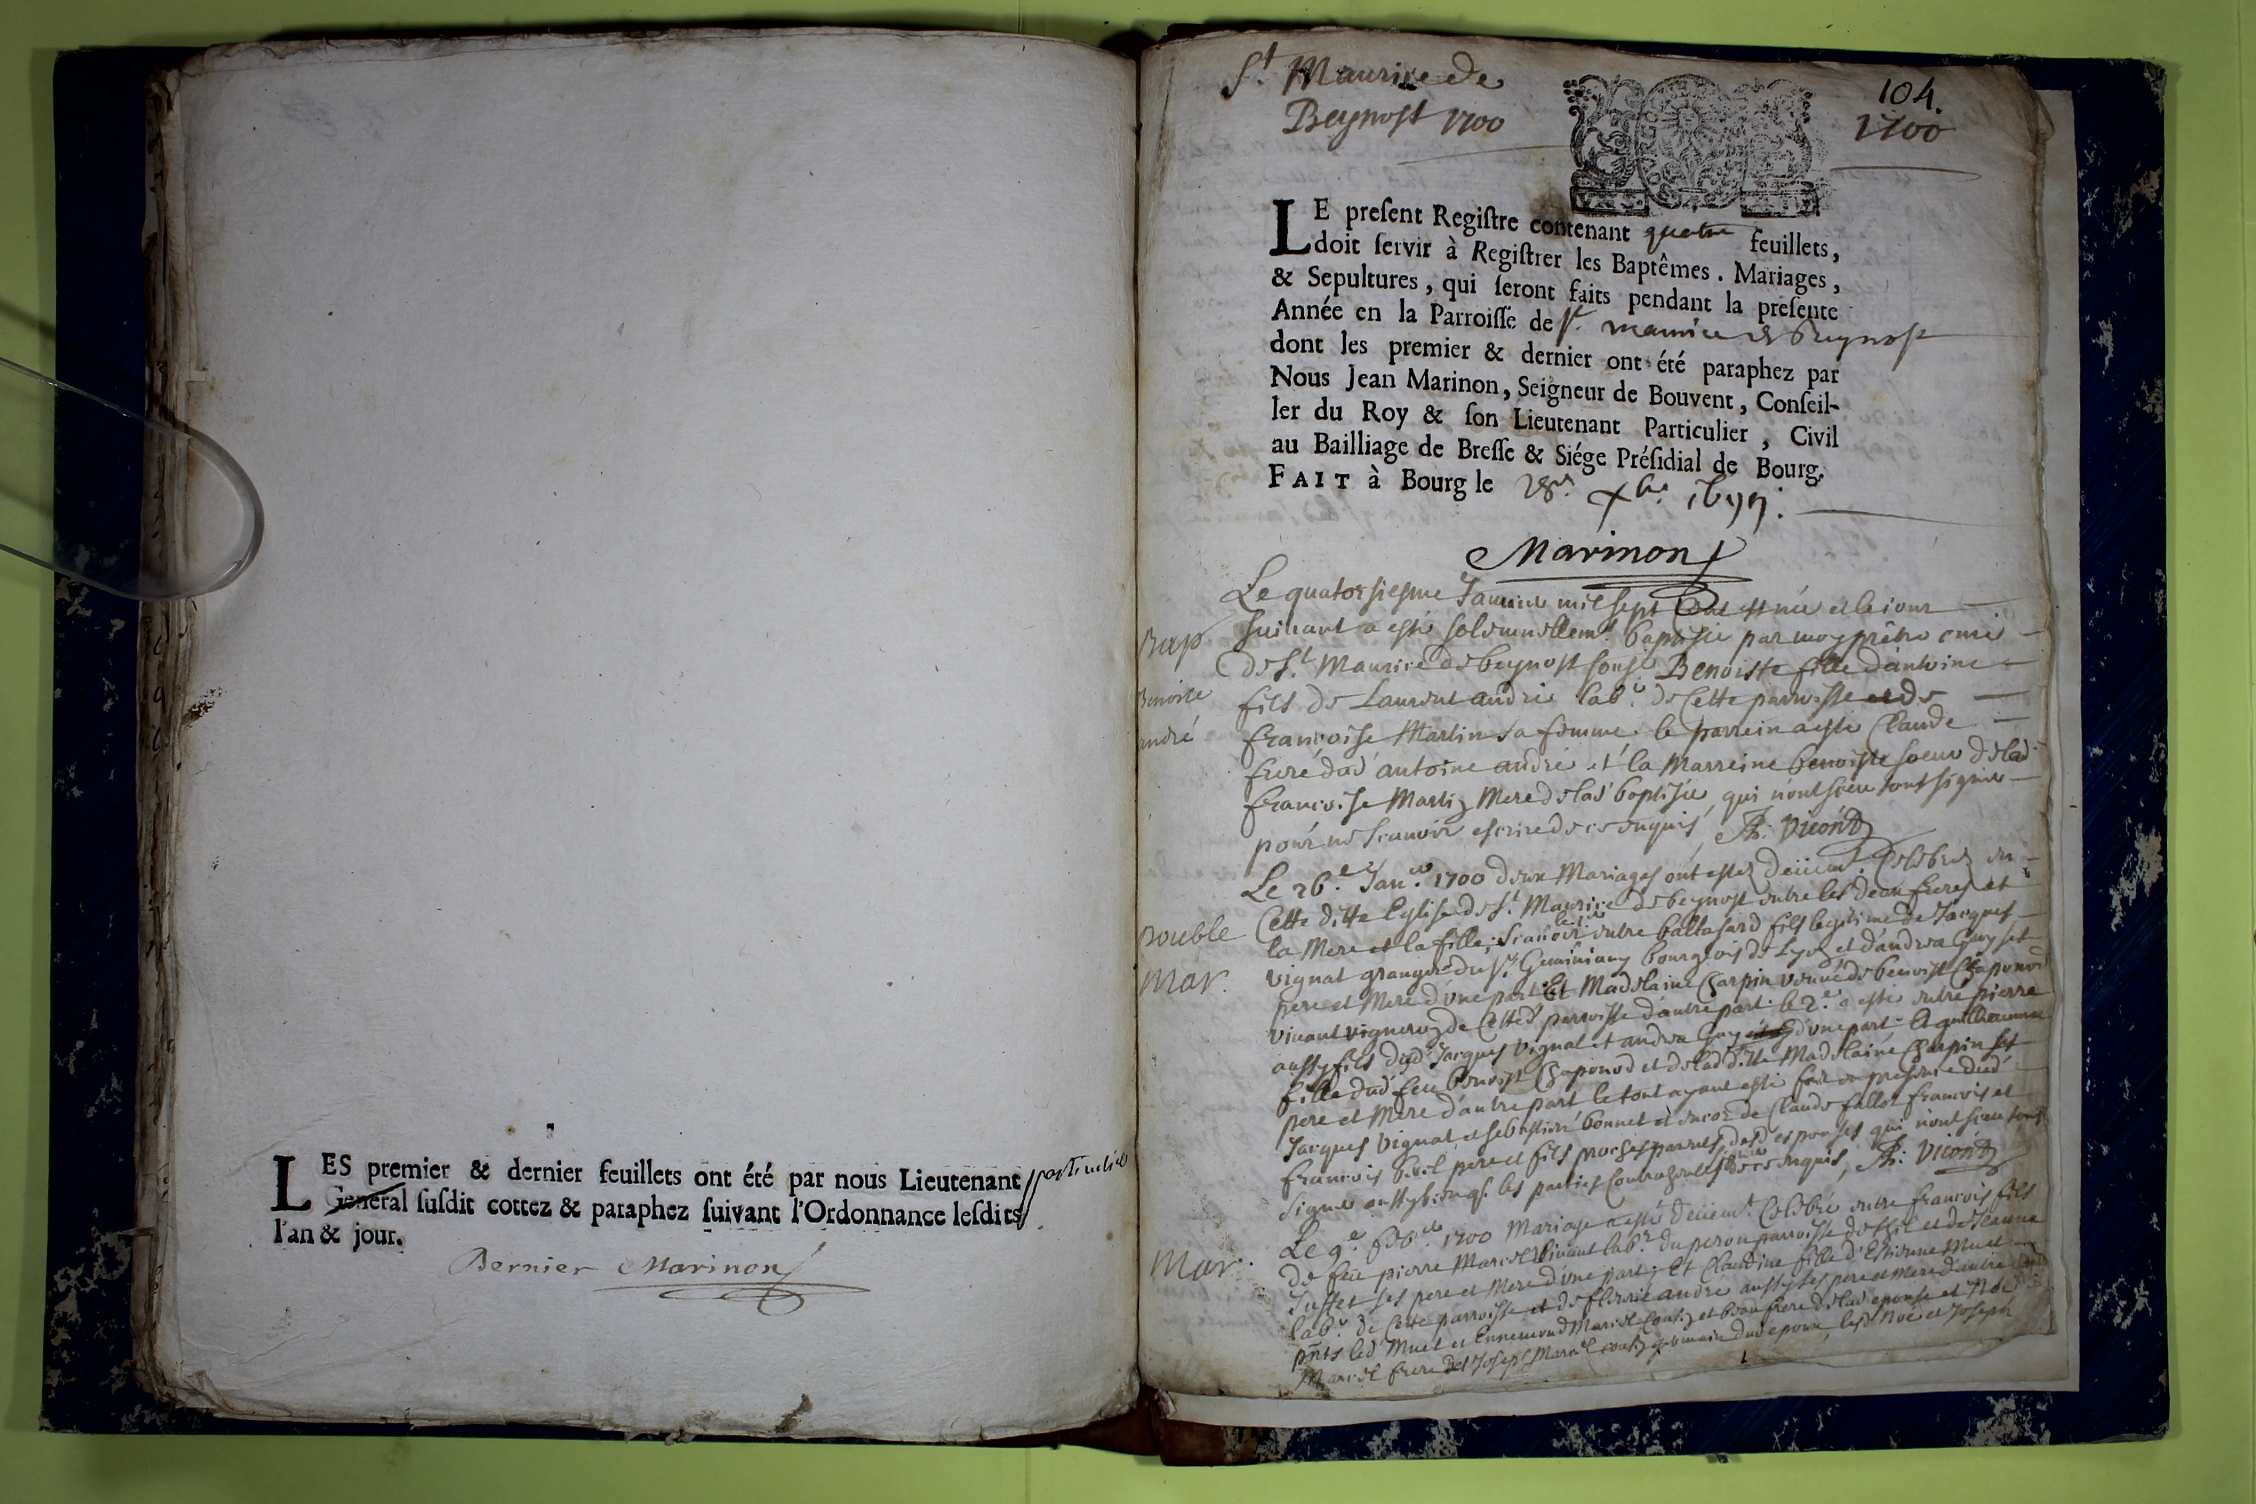 LES premier & dernier feuillets ont été par nous Lieutenant // particulier
General susdit cottez & paraphez suivant l'Ordonnance lesdits //
l'an & jour.
Dernier Marinon
St Maurice de
Beynost 1700
104.
1700
LE present Registre contenant quatre feuillets,
doit servir à Registrer les Baptêmes. Mariages,
& Sepultures, qui seront faits pendant la presente
Année en la Parroisse de St. maurice de beynost
dont les premier & dernier ont été paraphez par
Nous Jean Marinon, Seigneur de Bouvent, Conseil-
ler du Roy & son Lieutenant Particulier, Civil
au Bailliage de Bresse & Siége Présidial de Bourg.
FAIT à Bourg le 28e. xbre.
Marinon
Bap
Benoiste
andré
Le quatorsiesme Janvier mil sept Cent est née et le jour
suivant a esté solemnellemt. baptisée par moy prêtre curé
de St. Maurice de beynost souss. Benoiste fille d'antoine
fils de Laurent andré labr. de Cette parroisse et de
francoise Martin sa femme. le parrein a esté Claude
frere dud antoine andré et la Marreine benoiste soeur de lad
francoise Martin Mere de lad baptisée, qui n'ont sceu tous signer
pour ne scauoir escrire de ce enquis, Vicond
Double
Mar.
Le 26e. Janer. 1700 deux Mariages ont estez deüemt. Celebrez en
Cette ditte Eglise de St. Maurice de beynost entre les deux freres et
la Mere et la fille; scauoir entre baltasard fils legitime de Jacques
vignat granger du Sr. bourgeois de Lyon et d'andrea
pere et Mere d'une part Et Madelaine Charpin veuve de benoist Chaponod
vivant vigneron de Cetted parroisse d'autre part. le 2e. a esté entre pierre
aussy fils dud Jacques vignat et andrea Guy d'une part. Et guillaumme
fille dud feu benoist Chaponod et de lad ditte Madelaine Charpin ses
pere et Mere d'autre part le tout ayant esté fait en presence dud
Jacques Vignat, et sebastien bonnet et encor de Claude fallot francois et
francois pere et fils proches parents desd espouses qui n'ont sceu tous
signer aussy bien que les parties Contractantes de ce enquis, Vicond
Mar.
Le 9e. feber. 1700 Mariage a esté deüemt. Celebré entre francois fils
de feu pierre Marcel vivant labr. du peron parroisse de et de Jeanne
Juffet ses pere et Mere d'une part; Et Claudine fille d'Estienne Muet
labr. de Cette parroisse et de fleurie andre aussy ses pere et mere d'autre
pnts led Muet et Ennemond Marcel Cousin et beau frere de lad epouse et Noé
Marcel frere et Joseph Marcel cousin germain dud epoux, lesd Noé et Joseph